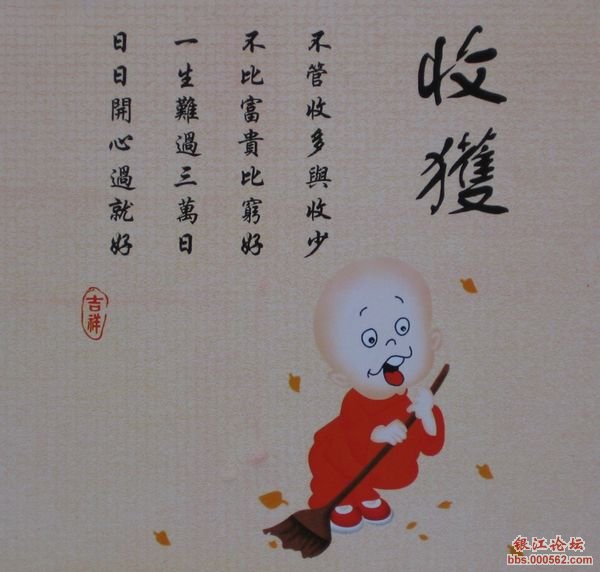 收獲
不管收多與收少
不比富貴比窮好
一生難過三萬日
日日開心過就好
吉祥
银江论坛
bbs.000562.com